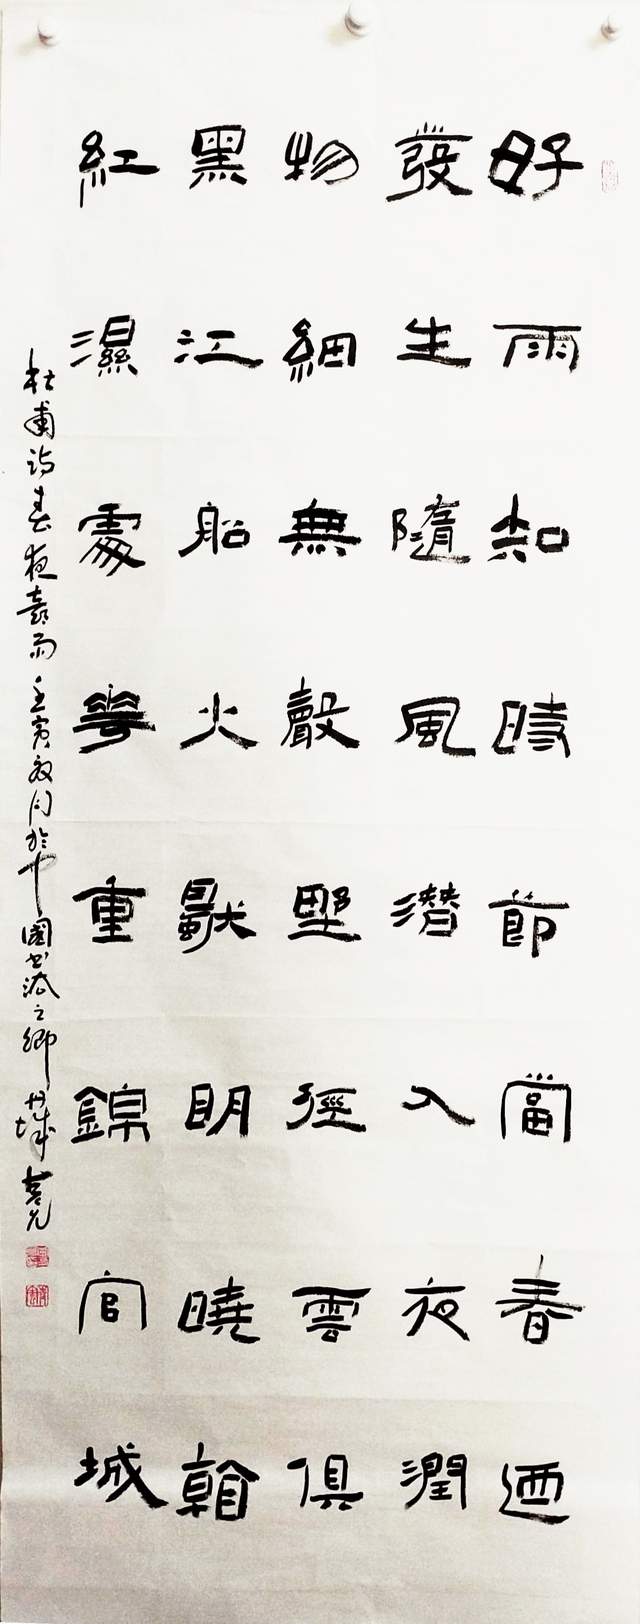 好雨知時節當春迺
發生隨風潛入夜潤
物細無聲野徑雲俱
黑江船火獨明曉看
紅濕處花重錦官城
杜甫詩春夜喜雨壬寅放月於中國書法之鄉